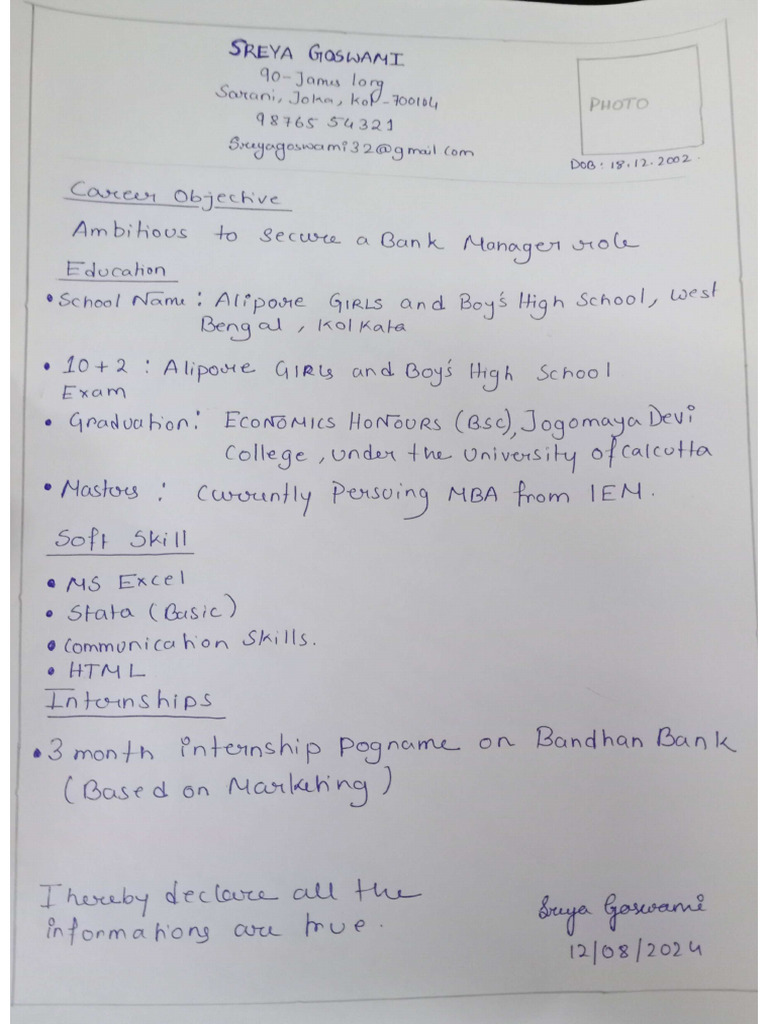 SREYA GOSWAMI
90-James long
Sarani, Joka, Kol-700104
98765 54321
Sreyagoswami32@gmail com
PHOTO
DOB: 18.12.2002.
Career Objective
Ambitious to secure a Bank Manager role
Education
• School Name: Alipore GIRLS and Boy's High School, West
Bengal, Kolkata
• 10+2 : Alipore GIRLS and Boy's High School
Exam
• Graduation: ECONOMICS HONOURS (BSC), Jogomaya Devi
College, under the University of Calcutta
• Mastors : Currently Persuing MBA from IEM.
Soft Skill
• MS Excel
• Stata (Basic)
• Communication Skills.
• HTML
Internships
• 3 month internship Pogname on Bandhan Bank
(Based on Marketing)
I hereby declare all the
informations are true.
Sreya Goswami
12/08/2024